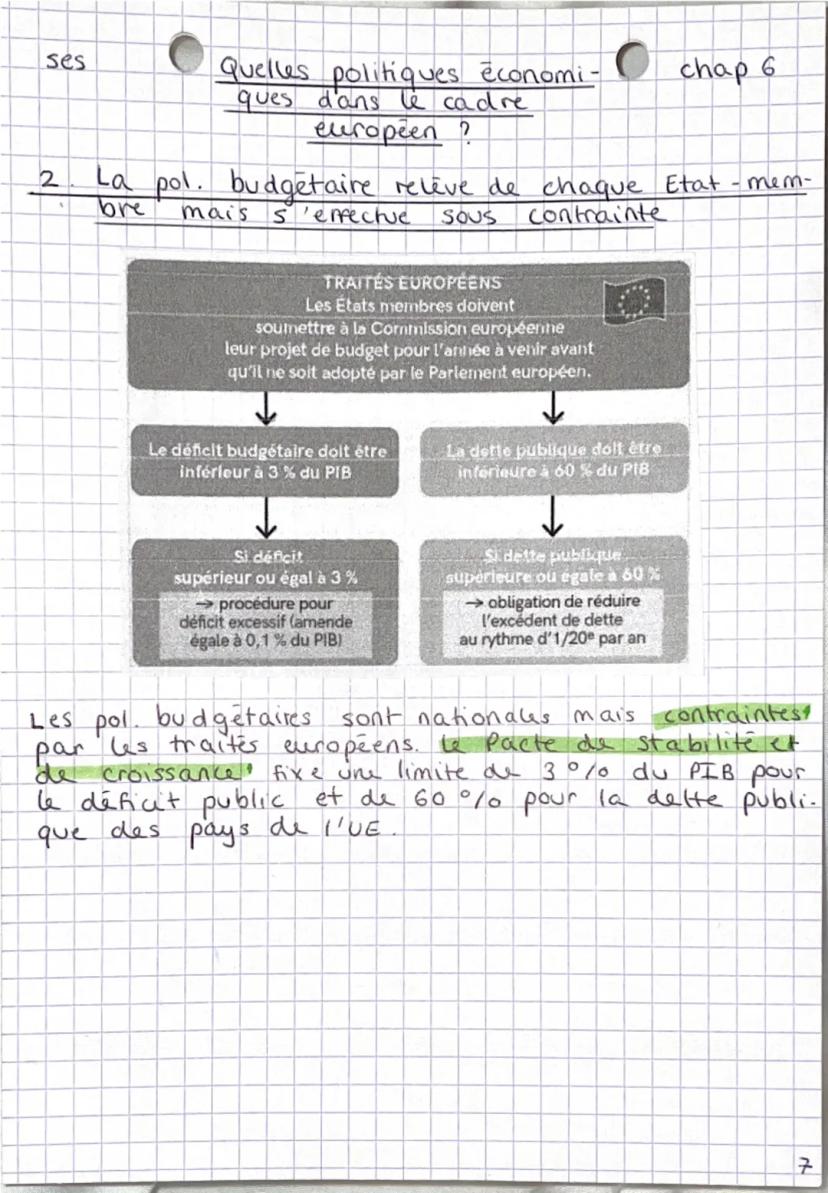 ses
Quelles politiques économi-
ques dans le cadre
européen ?
chap 6
2. La pol. budgétaire relève de chaque Etat-mem-
bre mais s'effectue sous contrainte
TRAITÉS EUROPÉENS
Les États membres doivent
soumettre à la Commission européenne
leur projet de budget pour l'année à venir avant
qu'il ne soit adopté par le Parlement européen.
Le déficit budgétaire doit être
inférieur à 3 % du PIB
La dette publique doit être
inférieure à 60 % du PIB
Si déficit
supérieur ou égal à 3 %
→ procédure pour
déficit excessif (amende
égale à 0,1 % du PIB)
Si dette publique
supérieure ou égale à 60 %
→ obligation de réduire
l'excédent de dette
au rythme d'1/20e par an
Les pol. budgétaires sont nationales mais contraintes
par les traités européens. Le Pacte de stabilité et
de croissance fixe une limite de 3 % du PIB pour
le déficit public et de 60 % pour la dette publi-
que des pays de l'UE.
7